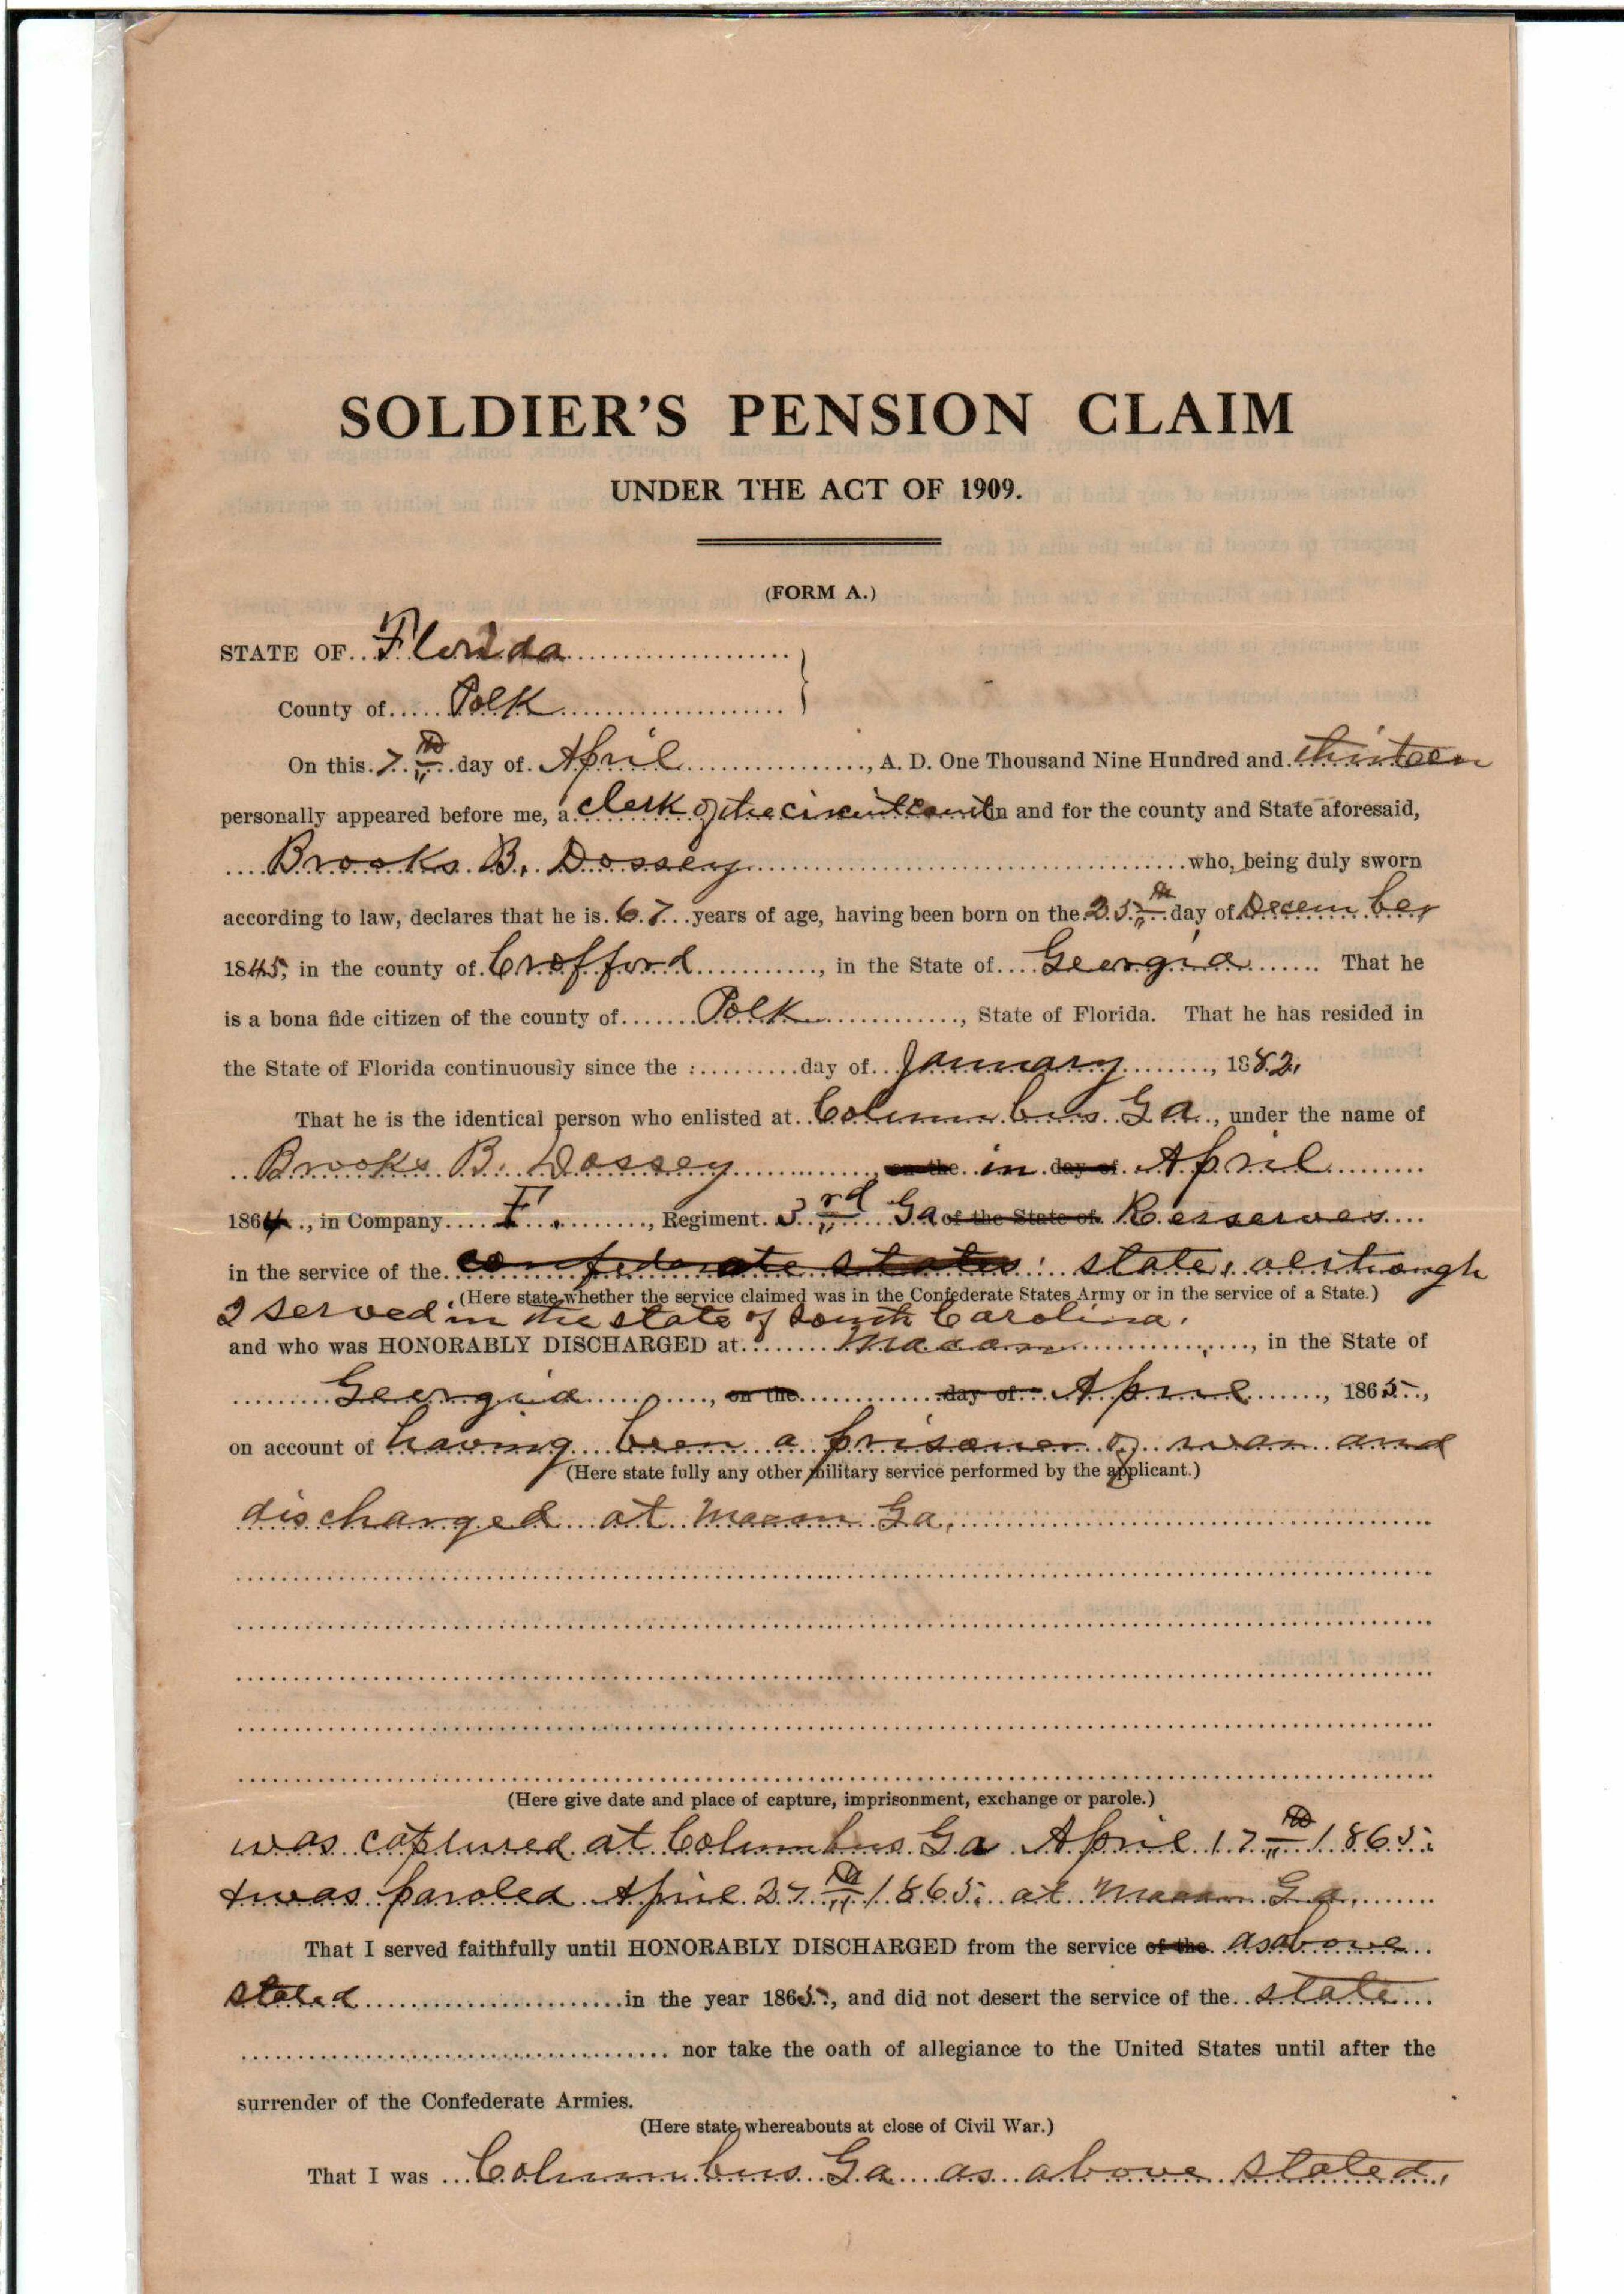 SOLDIER'S PENSION CLAIM
UNDER THE ACT OF 1909.
(FORM A.)
STATE OF Florida
County of Polk
On this 7th day of April, A. D. One Thousand Nine Hundred and thirteen
personally appeared before me, a clerk of the circuit court in and for the county and State aforesaid,
Brooks B. Dossey who, being duly sworn
according to law, declares that he is 67 years of age, having been born on the 25th day of December
1845, in the county of Crofford, in the State of Georgia That he
is a bona fide citizen of the county of Polk, State of Florida. That he has resided in
the State of Florida continuously since the : day of January, 1882.
That he is the identical person who enlisted at Columbus Ga., under the name of
Brooks B. Dossey, on the in day of April
1864, in Company F., Regiment 3rd Ga of the State of Reserves
in the service of the confederate states: state, although
(Here state whether the service claimed was in the Confederate States Army or in the service of a State.)
I served in the state of South Carolina.
and who was HONORABLY DISCHARGED at Macon, in the State of
Georgia, on the day of April, 1865,
on account of having been a prisoner of war and
(Here state fully any other military service performed by the applicant.)
discharged at Macon Ga.
(Here give date and place of capture, imprisonment, exchange or parole.)
was captured at Columbus Ga April 17th 1865.
& was paroled April 27th 1865. at Macon Ga.
That I served faithfully until HONORABLY DISCHARGED from the service of the as above
stated in the year 1865, and did not desert the service of the state
nor take the oath of allegiance to the United States until after the
surrender of the Confederate Armies.
(Here state whereabouts at close of Civil War.)
That I was Columbus Ga as above stated.